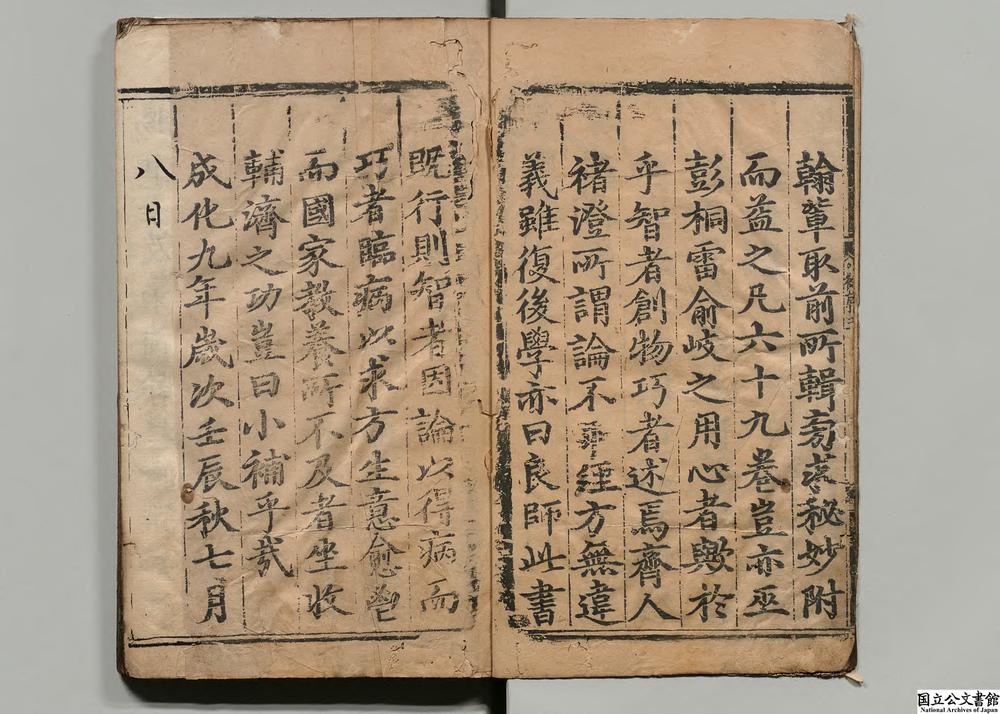 翰輩取前所輯旁求秘妙附
而益之凡六十九卷豈亦巫
彭桐雷俞岐之用心者歟於
乎智者創物巧者述焉齊人
褚澄所謂論不乖經方無違
義雖復後學亦曰良師此書
既行則智者因論以得病而
巧者臨病以求方生意愈
而國家教養所不及者坐收
輔濟之功豈曰小補乎㢤
成化九年歲次壬辰秋七月
八日
国立公文書館
National Archives of Japan